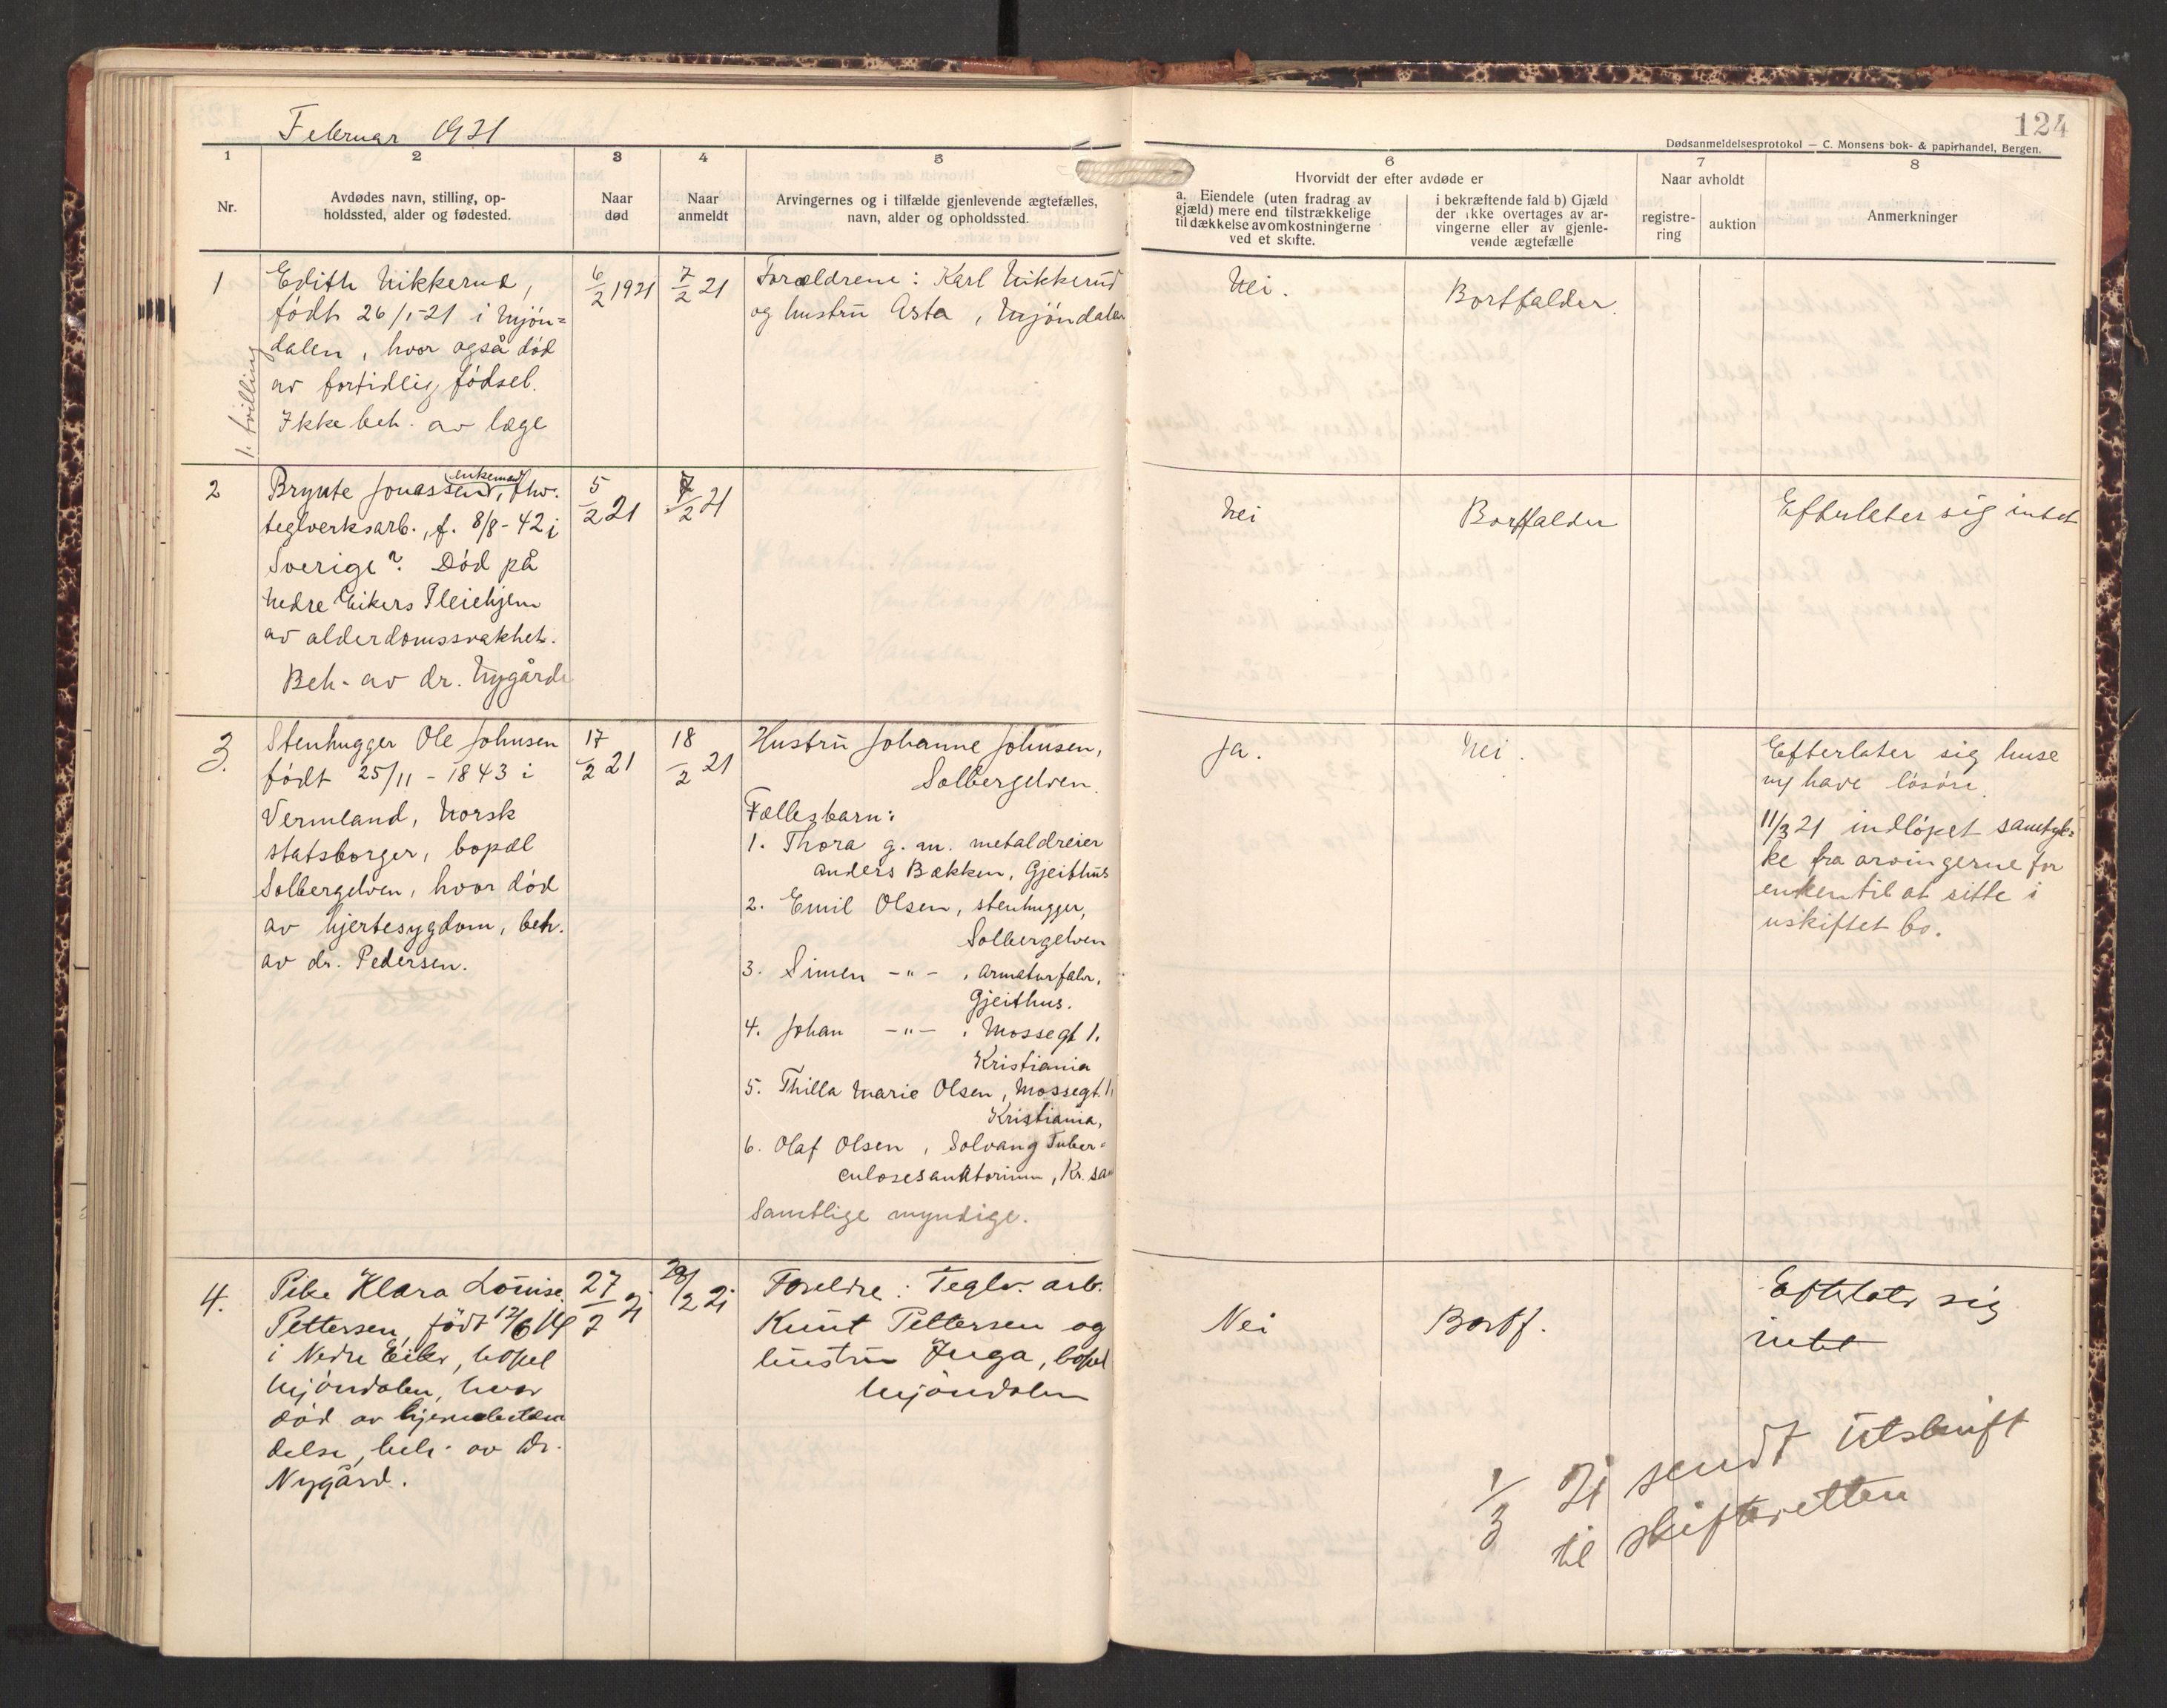 Februar 1921
124
Dødsanmeldelsesprotokol — C. Monsens bok- & papirhandel, Bergen.
1
2
3
4
5
6
7
8
Nr.
Avdødes navn, stilling, op-
holdssted, alder og fødested.
Naar
død
Naar
anmeldt
Arvingernes og i tilfælde gjenlevende ægtefælles,
navn, alder og opholdssted.
Hvorvidt der efter avdøde er
a. Eiendele (uten fradrag av
gjæld) mere end tilstrækkelige
til dækkelse av omkostningerne
ved et skifte.
i bekræftende fald b) Gjæld
der ikke overtages av ar-
vingerne eller av gjenle-
vende ægtefælle
Naar avholdt
registre-
ring
auktion
Anmerkninger
1
1. tvilling
Edith Nikkerud,
født 26/1-21 i Mjön=
dalen, hvor også död
av fortidlig födsel.
Ikke beh. av læge
6/2 1921
7/2 21
Forældrene: Karl Nikkerud
og hustru Asta, Mjöndalen
Nei.
Bortfalder.
2
enkemand
Brynte Jonassen, fhv.
teglverksarb., f. 8/8-42 i
Sverige? Död på
Nedre Eikers Pleiehjem
av alderdomssvakhet.
Beh. av dr. Nygård
5/2 21
7/2 21
Nei
Bortfalder
Efterlater sig intet
3.
Stenhugger Ole Johnsen
født 25/11 - 1843 i
Vermland, Norsk
statsborger, bopæl
Solbergelven, hvor död
av hjertesygdom, beh.
av dr. Pedersen.
17/2 21
18/2 21
Hustru Johanne Johnsen,
Solbergelven.
Fællesbarn:
1. Thora g. m. metaldreier
Anders Bakken, Gjeithus
2. Emil Olsen, stenhugger,
Solbergelven
3. Simen -"- , armaturfabr.
Gjeithus.
4. Johan -"- , Mossegt 1.
Kristiania
5. Thilla Marie Olsen, Mossegt. 1,
Kristiania,
6. Olaf Olsen, Solvang Tuber=
culosesanatorium, Kr. san
Samtlige myndige.
Ja.
Nei.
Efterlater sig huse
og have lösöre.
11/3 21 indlöpet samtyk=
ke fra arvingerne for
enken til at sitte i
uskiftet bo.
4.
Pike Klara Louise
Pettersen, födt 12/6 14
i Nedre Eiker, bopel
Mjöndalen, hvor
död av hjernebetæn
delse, beh. av Dr.
Nygård.
27/2 21
28/2 21
Foreldre: Teglv. arb.
Knut Pettersen og
hustru Inga, bopel
Mjöndalen
Nei
Bortf.
Efterlater sig
intet
1/3 21 sendt utskrift
til skifteretten